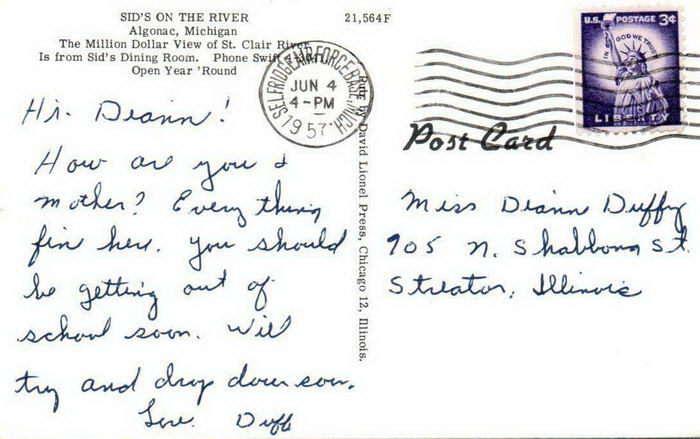 SID'S ON THE RIVER
Algonac, Michigan
The Million Dollar View of St. Clair River
Is from Sid's Dining Room. Phone Swift
Open Year 'Round
21,564F
Hi. Diann!
How are you &
mother? Every thing
fin here. You should
be getting out of
school soon. Will
try and drop down soon.
Love. Duff
SELFRIDGE AIR FORCE BASE, MICH.
JUN 4
4-PM
1957
by David Lionel Press, Chicago 12, Illinois.
U.S. POSTAGE 3¢
IN GOD WE TRUST
LIBERTY
Post Card
Miss Diann Duffy
905 N. Shabbona St.
Streator, Illinois